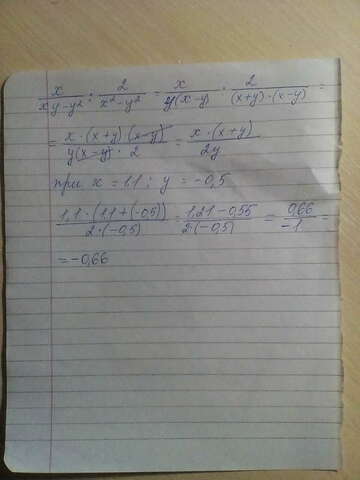 x/(xy-y²) : 2/(x²-y²) = x/(y(x-y)) : 2/((x+y)·(x-y)) =
= (x·(x+y)(x-y))/(y(x-y)·2) = (x·(x+y))/(2y)
при x = 1,1 ; y = -0,5
(1,1·(1,1+(-0,5)))/(2·(-0,5)) = (1,21-0,55)/(2·(-0,5)) = 0,66/(-1) =
= -0,66